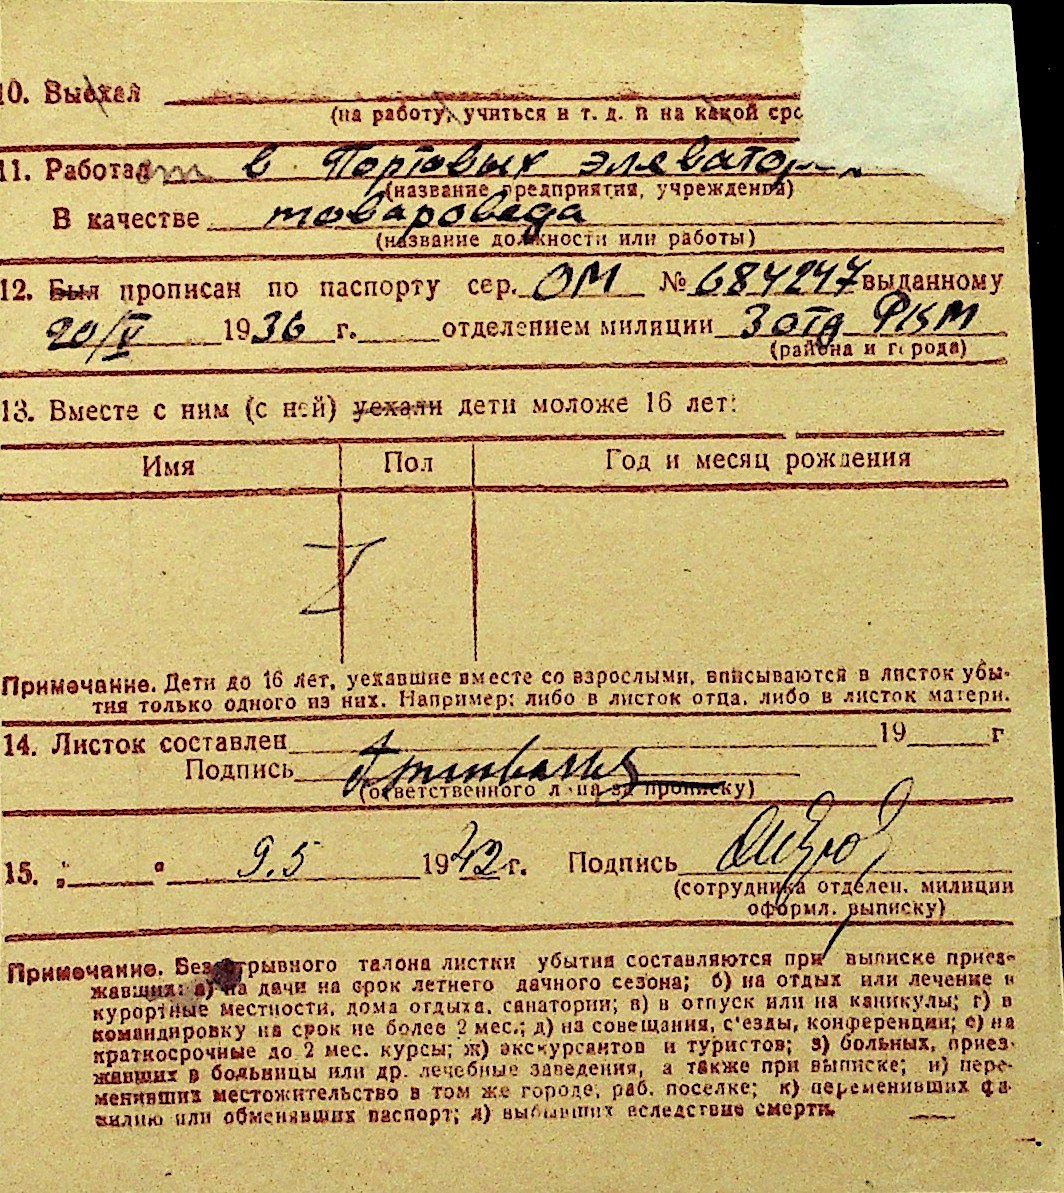 10. Выехал
(на работу, учиться и т. д. и на какой сро
11. Работает в Портовых элеватор
(название предприятия, учреждения)
В качестве товароведа
(название должности или работы)
12. Был прописан по паспорту сер. ОМ № 684247 выданному
20/V 1936 г. отделением милиции 3 отд РКМ
(района и города)
13. Вместе с ним (с ней) уехали дети моложе 16 лет:
Имя Пол Год и месяц рождения
Z
Примечание. Дети до 16 лет, уехавшие вместе со взрослыми, вписываются в листок убы-
тия только одного из них. Например: либо в листок отца, либо в листок матери.
14. Листок составлен 19 г
Подпись
(ответственного лица за прописку)
15. „ " 9.5 1942 г. Подпись
(сотрудника отделен. милиции
оформл. выписку)
Примечание. Без отрывного талона листки убытия составляются при выписке приез-
жавших: а) на дачи на срок летнего дачного сезона; б) на отдых или лечение в
курортные местности, дома отдыха, санатории; в) в отпуск или на каникулы; г) в
командировку на срок не более 2 мес.; д) на совещания, с'езды, конференции; е) на
краткосрочные до 2 мес. курсы; ж) экскурсантов и туристов; з) больных, приез-
жавших в больницы или др. лечебные заведения, а также при выписке; и) пере-
менивших местожительство в том же городе, раб. поселке; к) переменивших фа-
милию или обменявших паспорт; л) выбывших вследствие смерти.